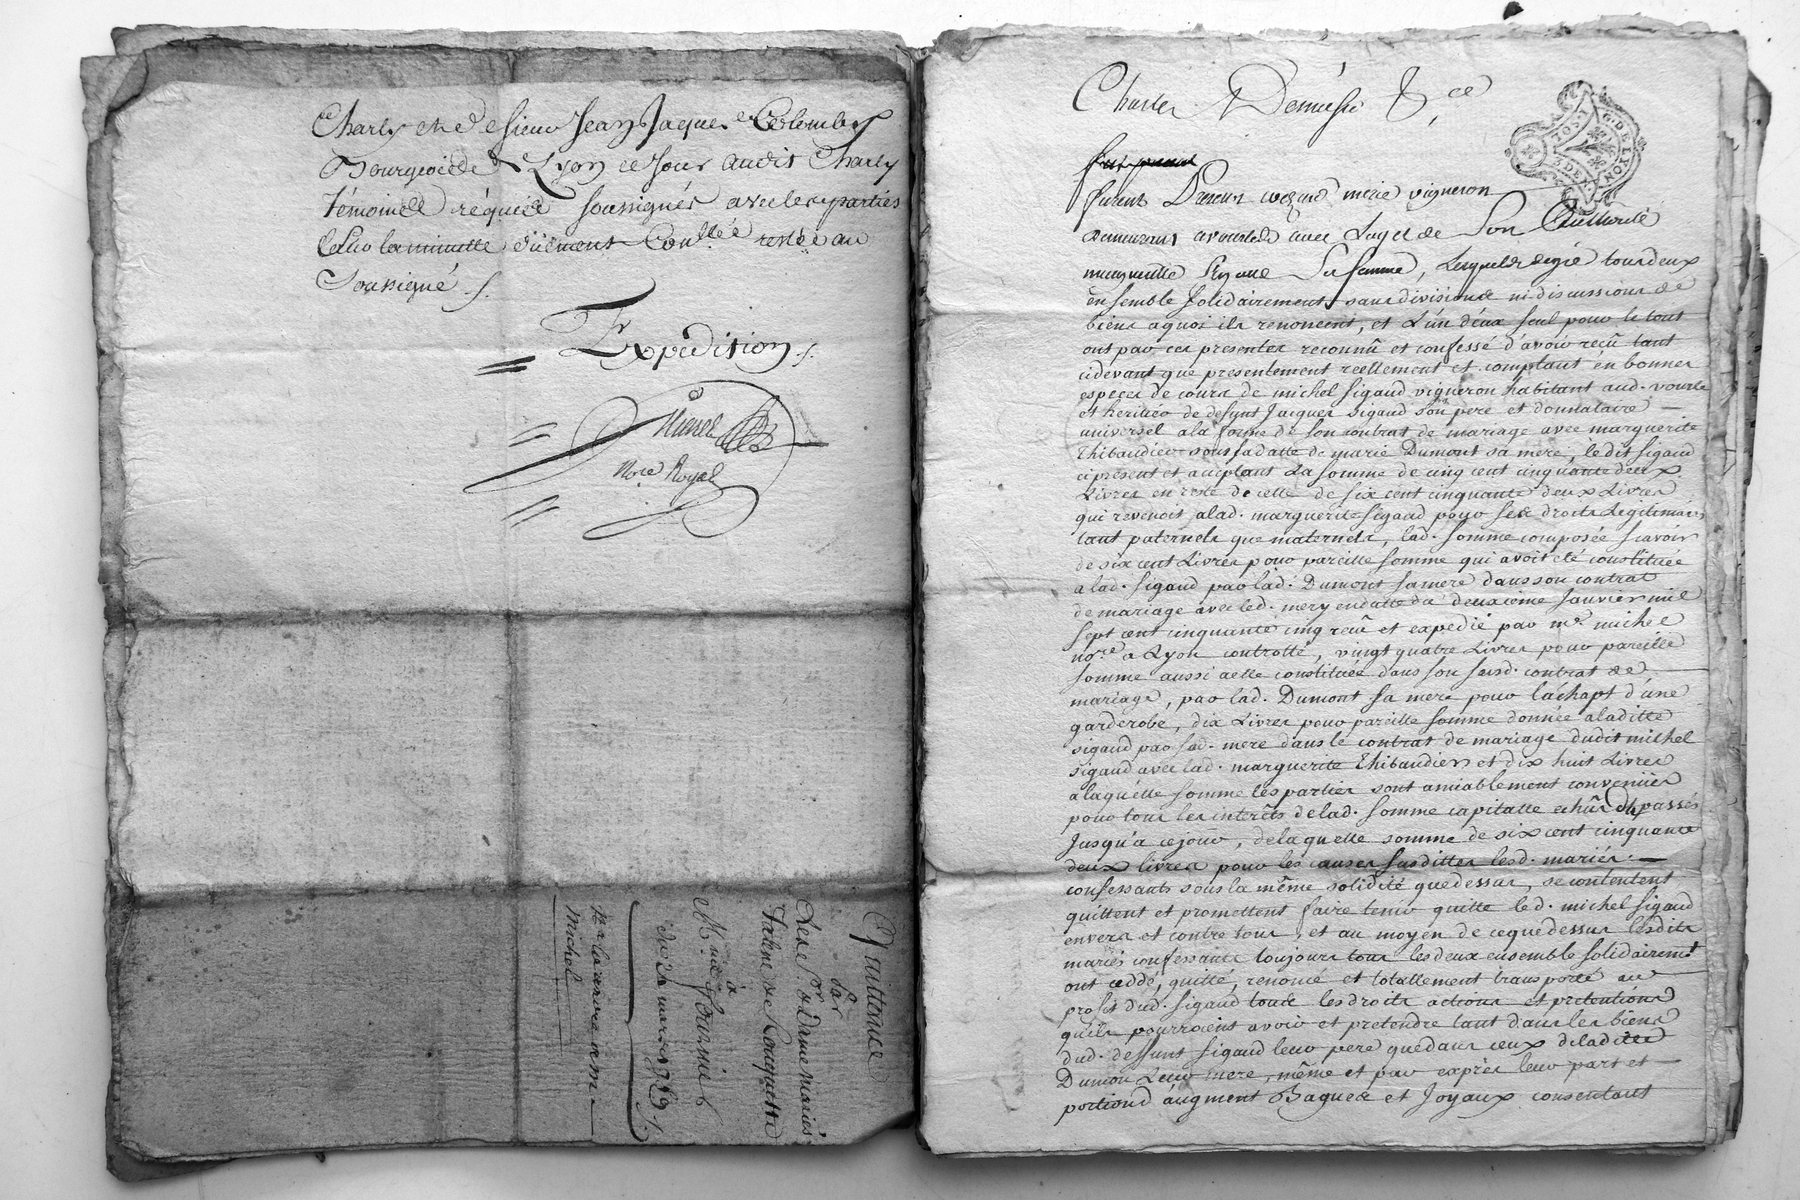 Charly et de sieur Jean Jaque Colomb
Bourgeois de Lyon ce jour audit Charly
témoins réquis soussignés avec les parties
la minutte düement Con.llée restée au
Soussigné ./.
Expedition ./.
Michel
No.re Royal
Quittance
par
Les Sr. et Dame mariés
à
du 21 mars
Michel
Charles
G. DE LYON
furent Presens merie vigneron
demeurant a vourles avec Luy et de Son Authorité
Sa femme, Lesquels de gré tous deux
ensemble solidairement sans division ni discussion de
biens a quoi ils renoncent, et L'un d'eux seul pour le tout
ont par ces presentes reconnû et confessé d'avoir reçû tant
cidevant que presentement réellement et comptant én bonnes
especes de cours de michel sigaud vigneron habitant aud. vourle
et heritiéo de defunt Jacques sigaud son pere et donnataire
universel a la forme de son contrat de mariage avec marguerite
Thibaudier sous sa datte de marie Dumont sa mere, le dit sigaud
ci présent et acceptant La somme de cinq cent cinquante deux
Livres en reste de celle de six cent cinquante deux Livres
qui revenoit a lad. marguerite sigaud pour ses droits Legitimaires
tant paternels que maternels, lad. somme composée sçavoir
de six cent Livres pour pareille somme qui avoit été constituée
a lad. sigaud par lad. Dumont sa mere dans son contrat
de mariage avec led. mery en datte du deuxième Janvier mil
sept cent cinquante cinq reçû et expedié par m.e michel
no.re a Lyon controllé, vingt quatre Livres pour pareille
somme aussi a elle constituée dans son susd. contrat de
mariage, par lad. Dumont sa mere pour láchapt d'une
garderobe, dix Livres pour pareille somme donnée a laditte
sigaud par sad. mere dans le contrat de mariage dudit michel
sigaud avec lad. marguerite Thibaudier et dix huit Livres
a laquelle somme les parties sont amiablement convenües
pour tous les interêts de lad. somme capitalle echûs et passés
Jusqu'à ce jour, de laquelle somme de six cent cinquante
deux livres pour les causes susdittes lesd. mariés
confessants sous la même solidité que dessus, se contentent
quittent et promettent faire tenir quitte led. michel sigaud
envers et contre tous, et au moyen de ce que dessus lesdits
mariés confessants toujours tous les deux ensemble solidairemt
ont ceddé, quitté, renoncé et totallement transporté au
profit dud. sigaud tous les droits actions et pretentions
qu'ils pourroient avoir et pretendre tant dans les biens
dud. deffunt sigaud leur pere que dans ceux de laditte
Dumon Leur mere, même et par exprès leur part et
portion d'augment Bagues et Joyaux consentant